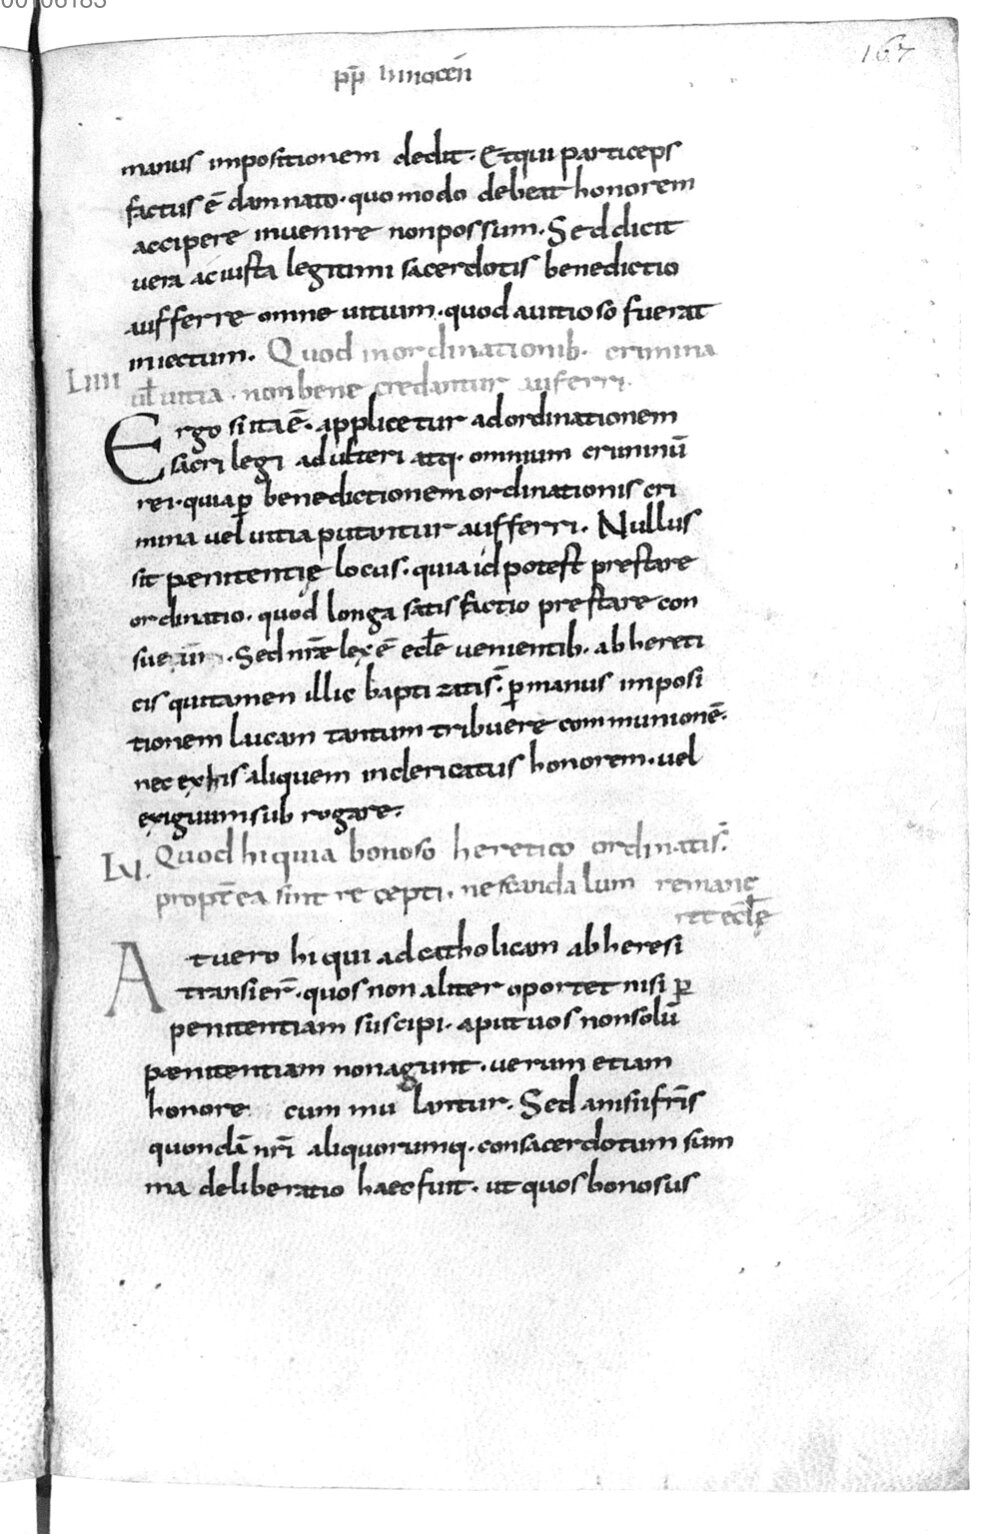 167
pp̄ Innocen̄
manus impositionem dedit. Et qui particeps
factus ē damnato. quo modo debeat honorem
accipere invenire non possum. Sed dicit
vera ac iusta legitimi sacerdotis benedictio
aufferre omne vitium. quod a vitioso fuerat
iniectum. Quod in ordinationib. crimina
Liiii
ul̄ vitia. non bene credantur auferri.
Ergo si ita ē. applicetur ad ordinationem
sacri legi adulteri atq. omnium criminū
rei. quia p̄ benedictionem ordinationis cri
mina vel vitia putantur aufferri. Nullus
sit penitentię locus. quia id potest prestare
ordinatio. quod longa satisfactio prestare con
sue. Sed nr̄ae lex ē eccl̄e venientib. ab hereti
cis qui tamen illic baptizatis.̄ p̄ manus imposi
tionem Lucam tantum tribuere communionē.
nec ex his aliquem in clericatus honorem. vel
exiguum sub rogare.
Lv. Quod hi quia bonoso heretico ordinatis.̄
propt̄ea sint recepti. ne scandalum remane
ret eccl̄ę
At vero hi qui ad catholicam ab heresi
transier̄. quos non aliter oportet nisi p̄
penitentiam suscipi. aput vos non solū
pænitentiam non agunt. verum etiam
honore cummulantur. Sed anisii fr̄is
quondā nr̄i aliquorumq. consacerdotum sum
ma deliberatio haec fuit. ut quos bonosus